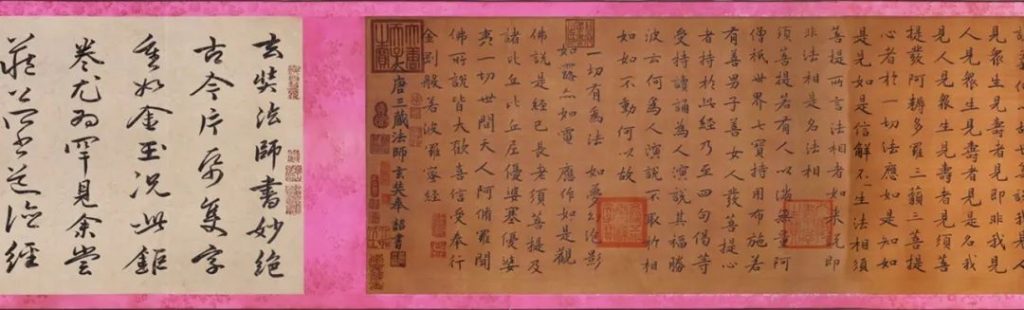 見衆生見壽者見即非我見
人見衆生見壽者見是名我見
人見衆生見壽者見須菩
提發阿耨多羅三藐三菩提
心者於一切法應如是知如
是見如是信解不生法相須
菩提所言法相者如來說即
非法相是名法相
須菩提若有人以滿無量阿
僧祇世界七寶持用布施若
有善男子善女人發菩提心
者持於此經乃至四句偈等
受持讀誦為人演說其福勝
彼云何為人演說不取於相
如如不動何以故
一切有為法 如夢幻泡影
如露亦如電 應作如是觀
佛說是經已長老須菩提及
諸比丘比丘尼優婆塞優婆
夷一切世間天人阿脩羅聞
佛所說皆大歡喜信受奉行
金剛般若波羅蜜經
唐三藏法師玄奘奉 詔書
玄奘法師書妙絕
古今片紙隻字
重如金玉況此鉅
卷尤為罕見余嘗